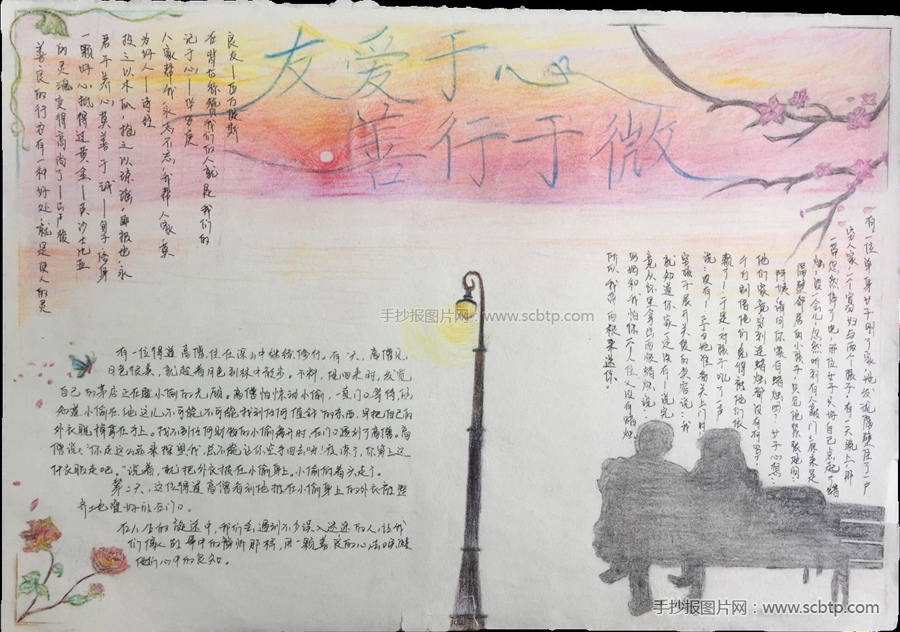 友爱于心
善行于微
善良的行为有一种好处,就是使人的灵
的灵魂变得高尚了——卢梭
一颗好心抵得过黄金——莎士比亚
君子养心,莫善于诚——荀子·修身
投之以木瓜,报之以琼瑶,匪报也,永
为好人——诗经
人家帮我,永志不忘,我帮人家,莫
记于心——华罗庚
在背后称赞我们的人就是我们的
良友——西方彼斯
有一位单身女子刚了家,她发现隔壁住了一户
穷人家,一个寡妇与两个孩子。有一天晚上,那
一带忽然停了电,那位女子只好自己点起了蜡
烛。没一会儿,忽然听到有人敲门。原来是
隔壁邻居的小孩子,只见他紧张地问:
阿姨,请问你家有蜡烛吗?女子心想:
他们家竟穷到连蜡烛都没有吗?
千万别借他们,免得被他们依
赖了!于是,对孩子吼了一声
说:没有!正当她准备关上门时,
穷孩子展开关爱的笑容说:我
就知道你家一定没有!说完,
竟从怀里拿出两根蜡烛,说:
妈妈和我怕你一个人住又没有蜡烛
所以我带两根来送你。
有一位得道高僧,住在深山中继续修行。有一天,高僧见
月色很美,就趁着月色到林中散步。不料,他回来时,发觉
自己的茅屋正在遭小偷的光顾。高僧怕惊动小偷,一直门口等待,他
知道小偷在他这儿不可能不可能找到任何值钱的东西,早把自己的
外衣脱掉拿在手上。找不到任何财物的小偷离开时,在门口遇到了高僧。高
僧说:“你走这么远来探望我,总不能让你空手回去呀!夜深了,你穿上这
件衣服走吧。”说着,就把外衣披在小偷身上。小偷低着头走了。
第二天,这位得道高僧看到他披在小偷身上的外衣被整
齐地叠好放在门口。
在人生的旅途中,我们会遇到不少误入迷途的人,让我
们像故事中的禅师那样,用一颗善良的心去唤醒
他们心中的良知。
手抄报图片网:www.scbtp.com
手抄报图片网:www.scbtp.com